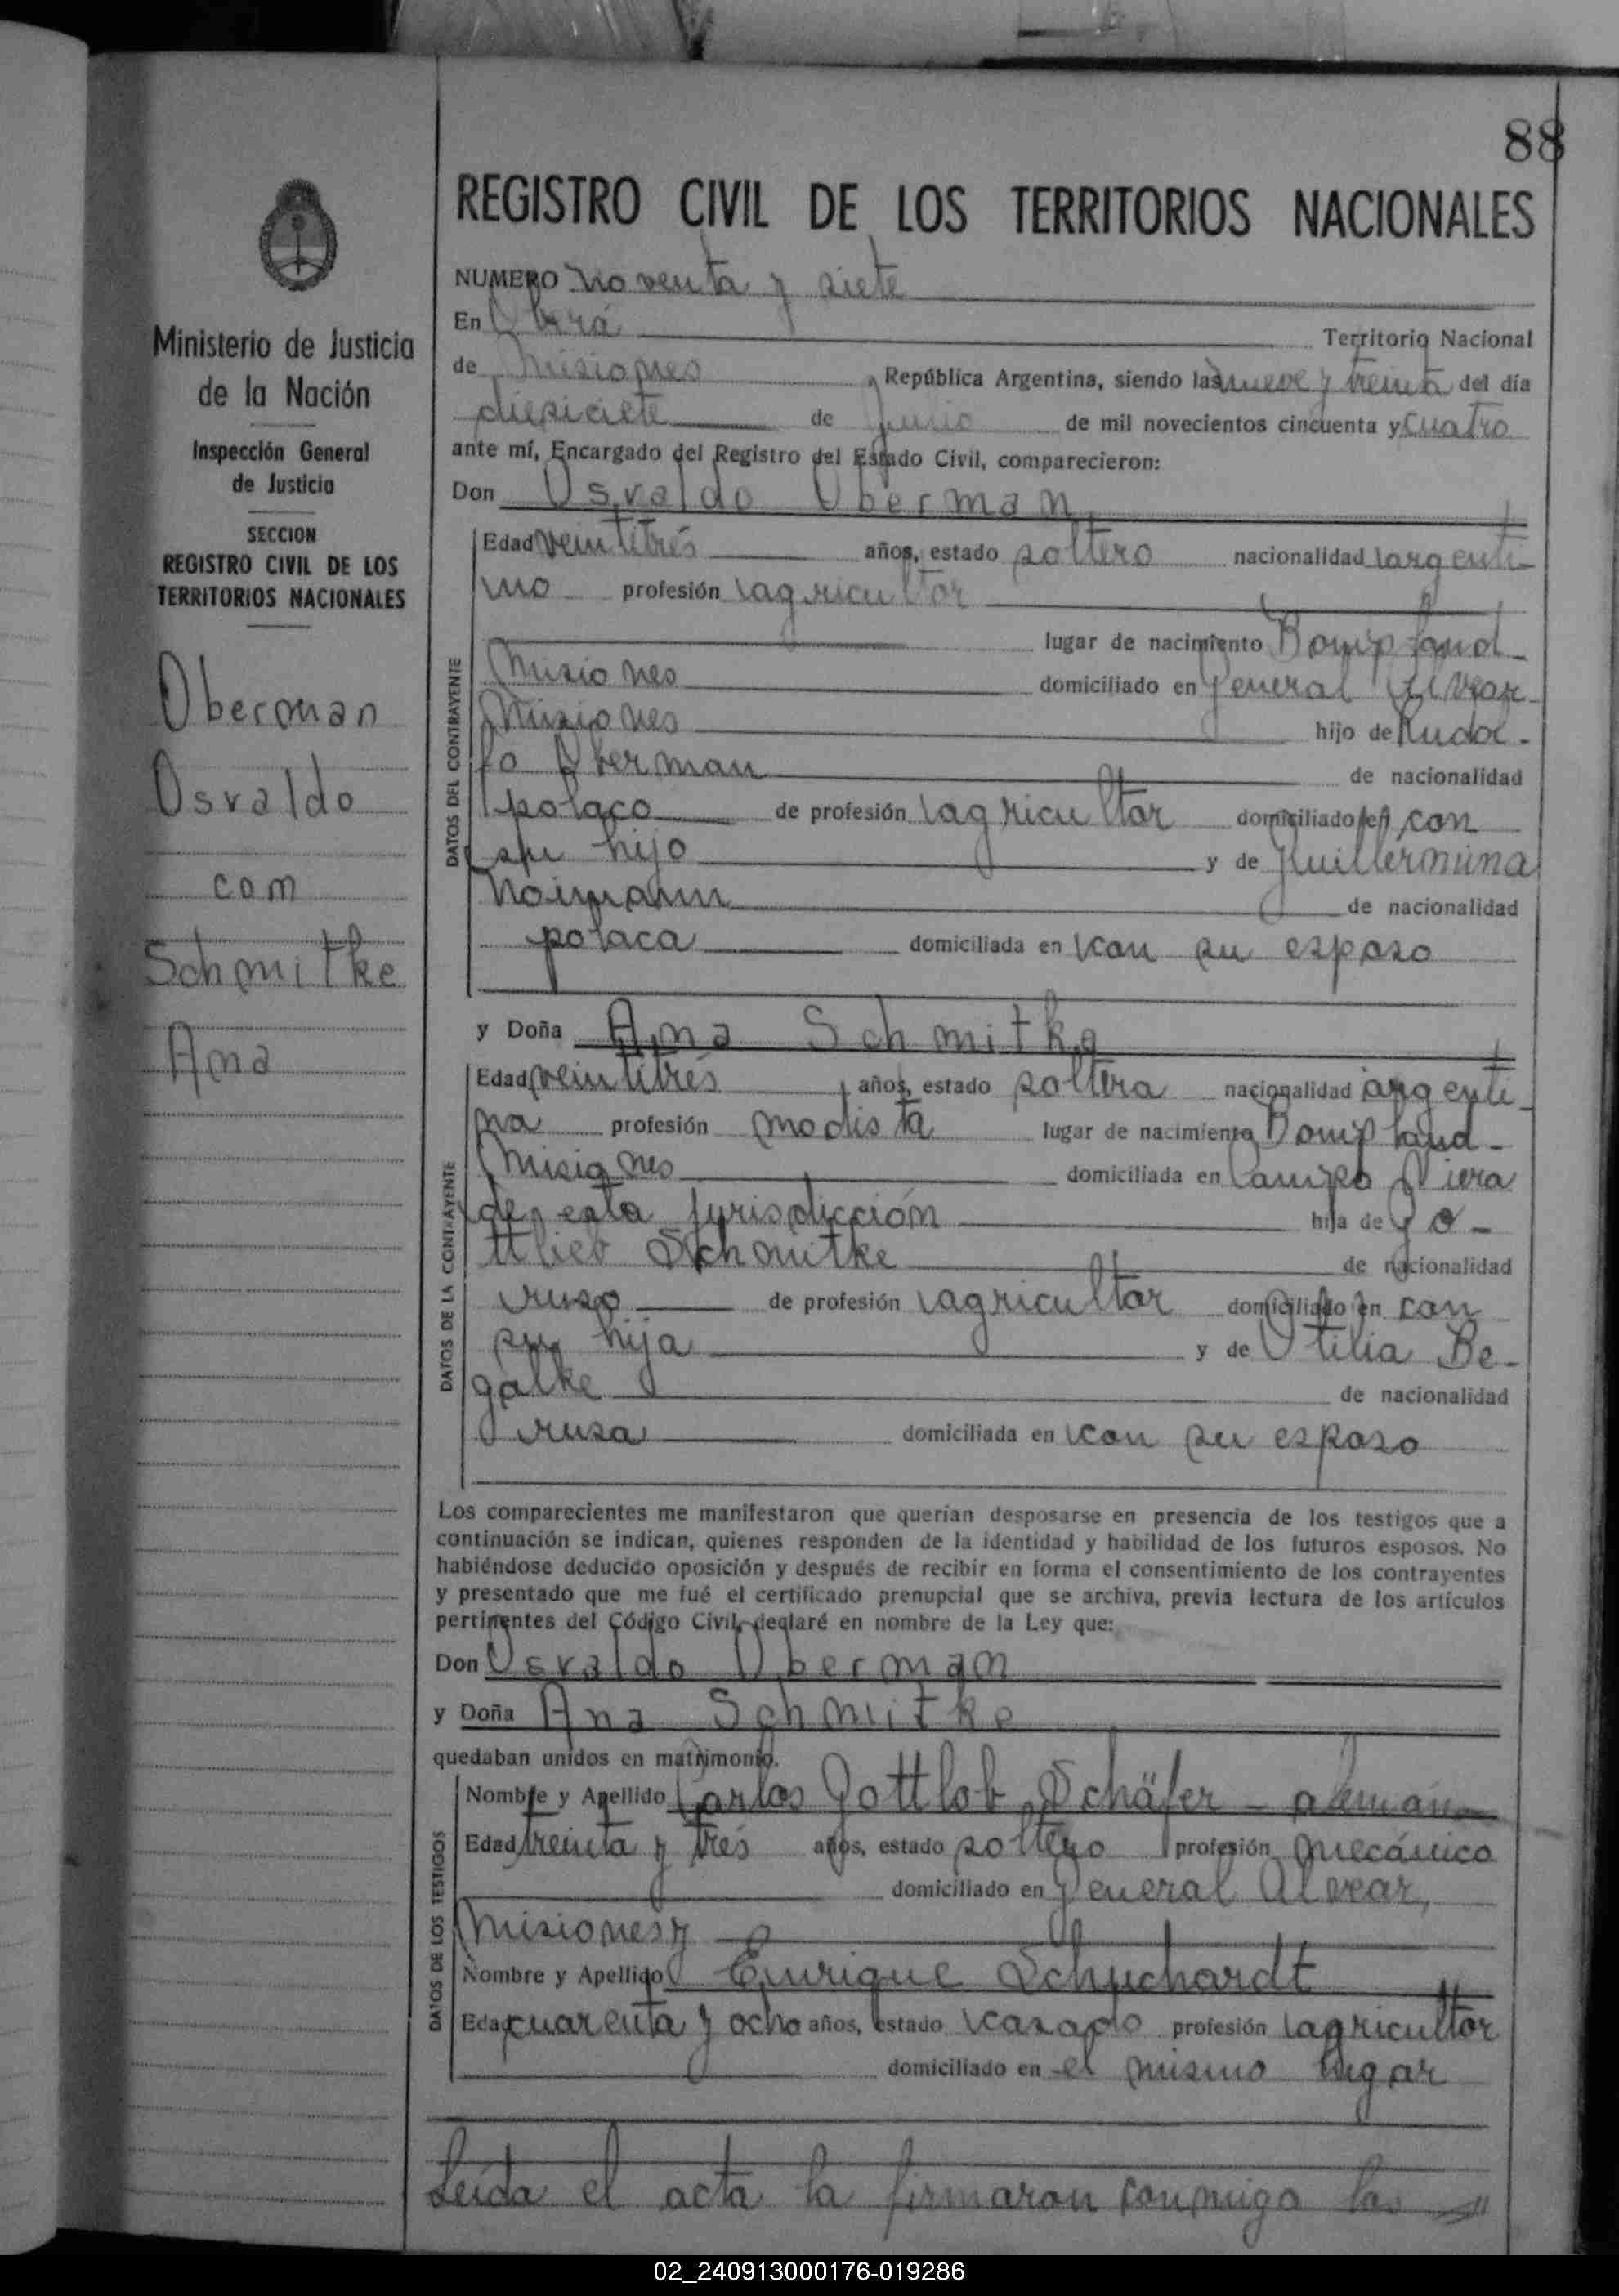 88
REGISTRO CIVIL DE LOS TERRITORIOS NACIONALES
NUMERO noventa y siete
En Oberá Territorio Nacional
de Misiones, República Argentina, siendo las nueve y treinta del día
diesiciete de Junio de mil novecientos cincuenta y cuatro
ante mí, Encargado del Registro del Estado Civil, comparecieron:
Don Osvaldo Oberman
Edad veintitrés años, estado soltero nacionalidad argenti-
no profesión agricultor
lugar de nacimiento Bonpland-
Misiones domiciliado en General Alvear-
Misiones hijo de Rudol-
fo Oberman de nacionalidad
polaco de profesión agricultor domiciliado en con
su hijo y de Guillermina
Noimann de nacionalidad
polaca domiciliada en con su esposo
y Doña Ana Schmitke
Edad veintitrés años, estado soltera nacionalidad argenti-
na profesión modista lugar de nacimiento Bonpland-
Misiones domiciliada en Campo Viera
de esta jurisdicción hija de Go-
ttlieb Schmitke de nacionalidad
ruso de profesión agricultor domiciliado en con
su hija y de Otilia Be-
galke de nacionalidad
rusa domiciliada en con su esposo
Los comparecientes me manifestaron que querían desposarse en presencia de los testigos que a
continuación se indican, quienes responden de la identidad y habilidad de los futuros esposos. No
habiéndose deducido oposición y después de recibir en forma el consentimiento de los contrayentes
y presentado que me fué el certificado prenupcial que se archiva, previa lectura de los artículos
pertinentes del Código Civil, declaré en nombre de la Ley que:
Don Osvaldo Oberman
y Doña Ana Schmitke
quedaban unidos en matrimonio.
Nombre y Apellido Carlos Gottlob Schäfer - alemán
Edad treinta y trés años, estado soltero profesión mecánico
domiciliado en General Alvear,
Misiones y
Nombre y Apellido Enrique Schuchardt
Edad cuarenta y ocho años, estado casado profesión agricultor
domiciliado en el mismo lugar
Leída el acta la firmaron conmigo los
DATOS DEL CONTRAYENTE
DATOS DE LA CONTRAYENTE
DATOS DE LOS TESTIGOS
Ministerio de Justicia
de la Nación
Inspección General
de Justicia
SECCION
REGISTRO CIVIL DE LOS
TERRITORIOS NACIONALES
Oberman
Osvaldo
com
Schmitke
Ana
02_240913000176-019286